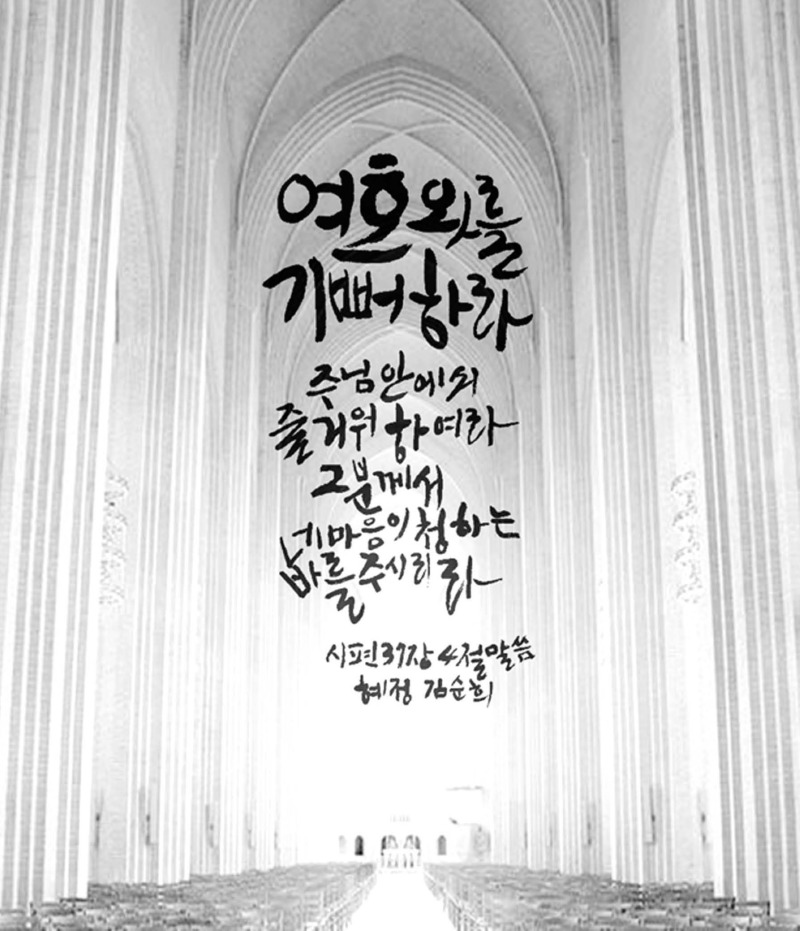 여호와를
기뻐하라
주님 안에서
즐거워 하여라
그분께서
네 마음이 청하는
바를 주시리라
시편 37장 4절 말씀
혜정 김순희